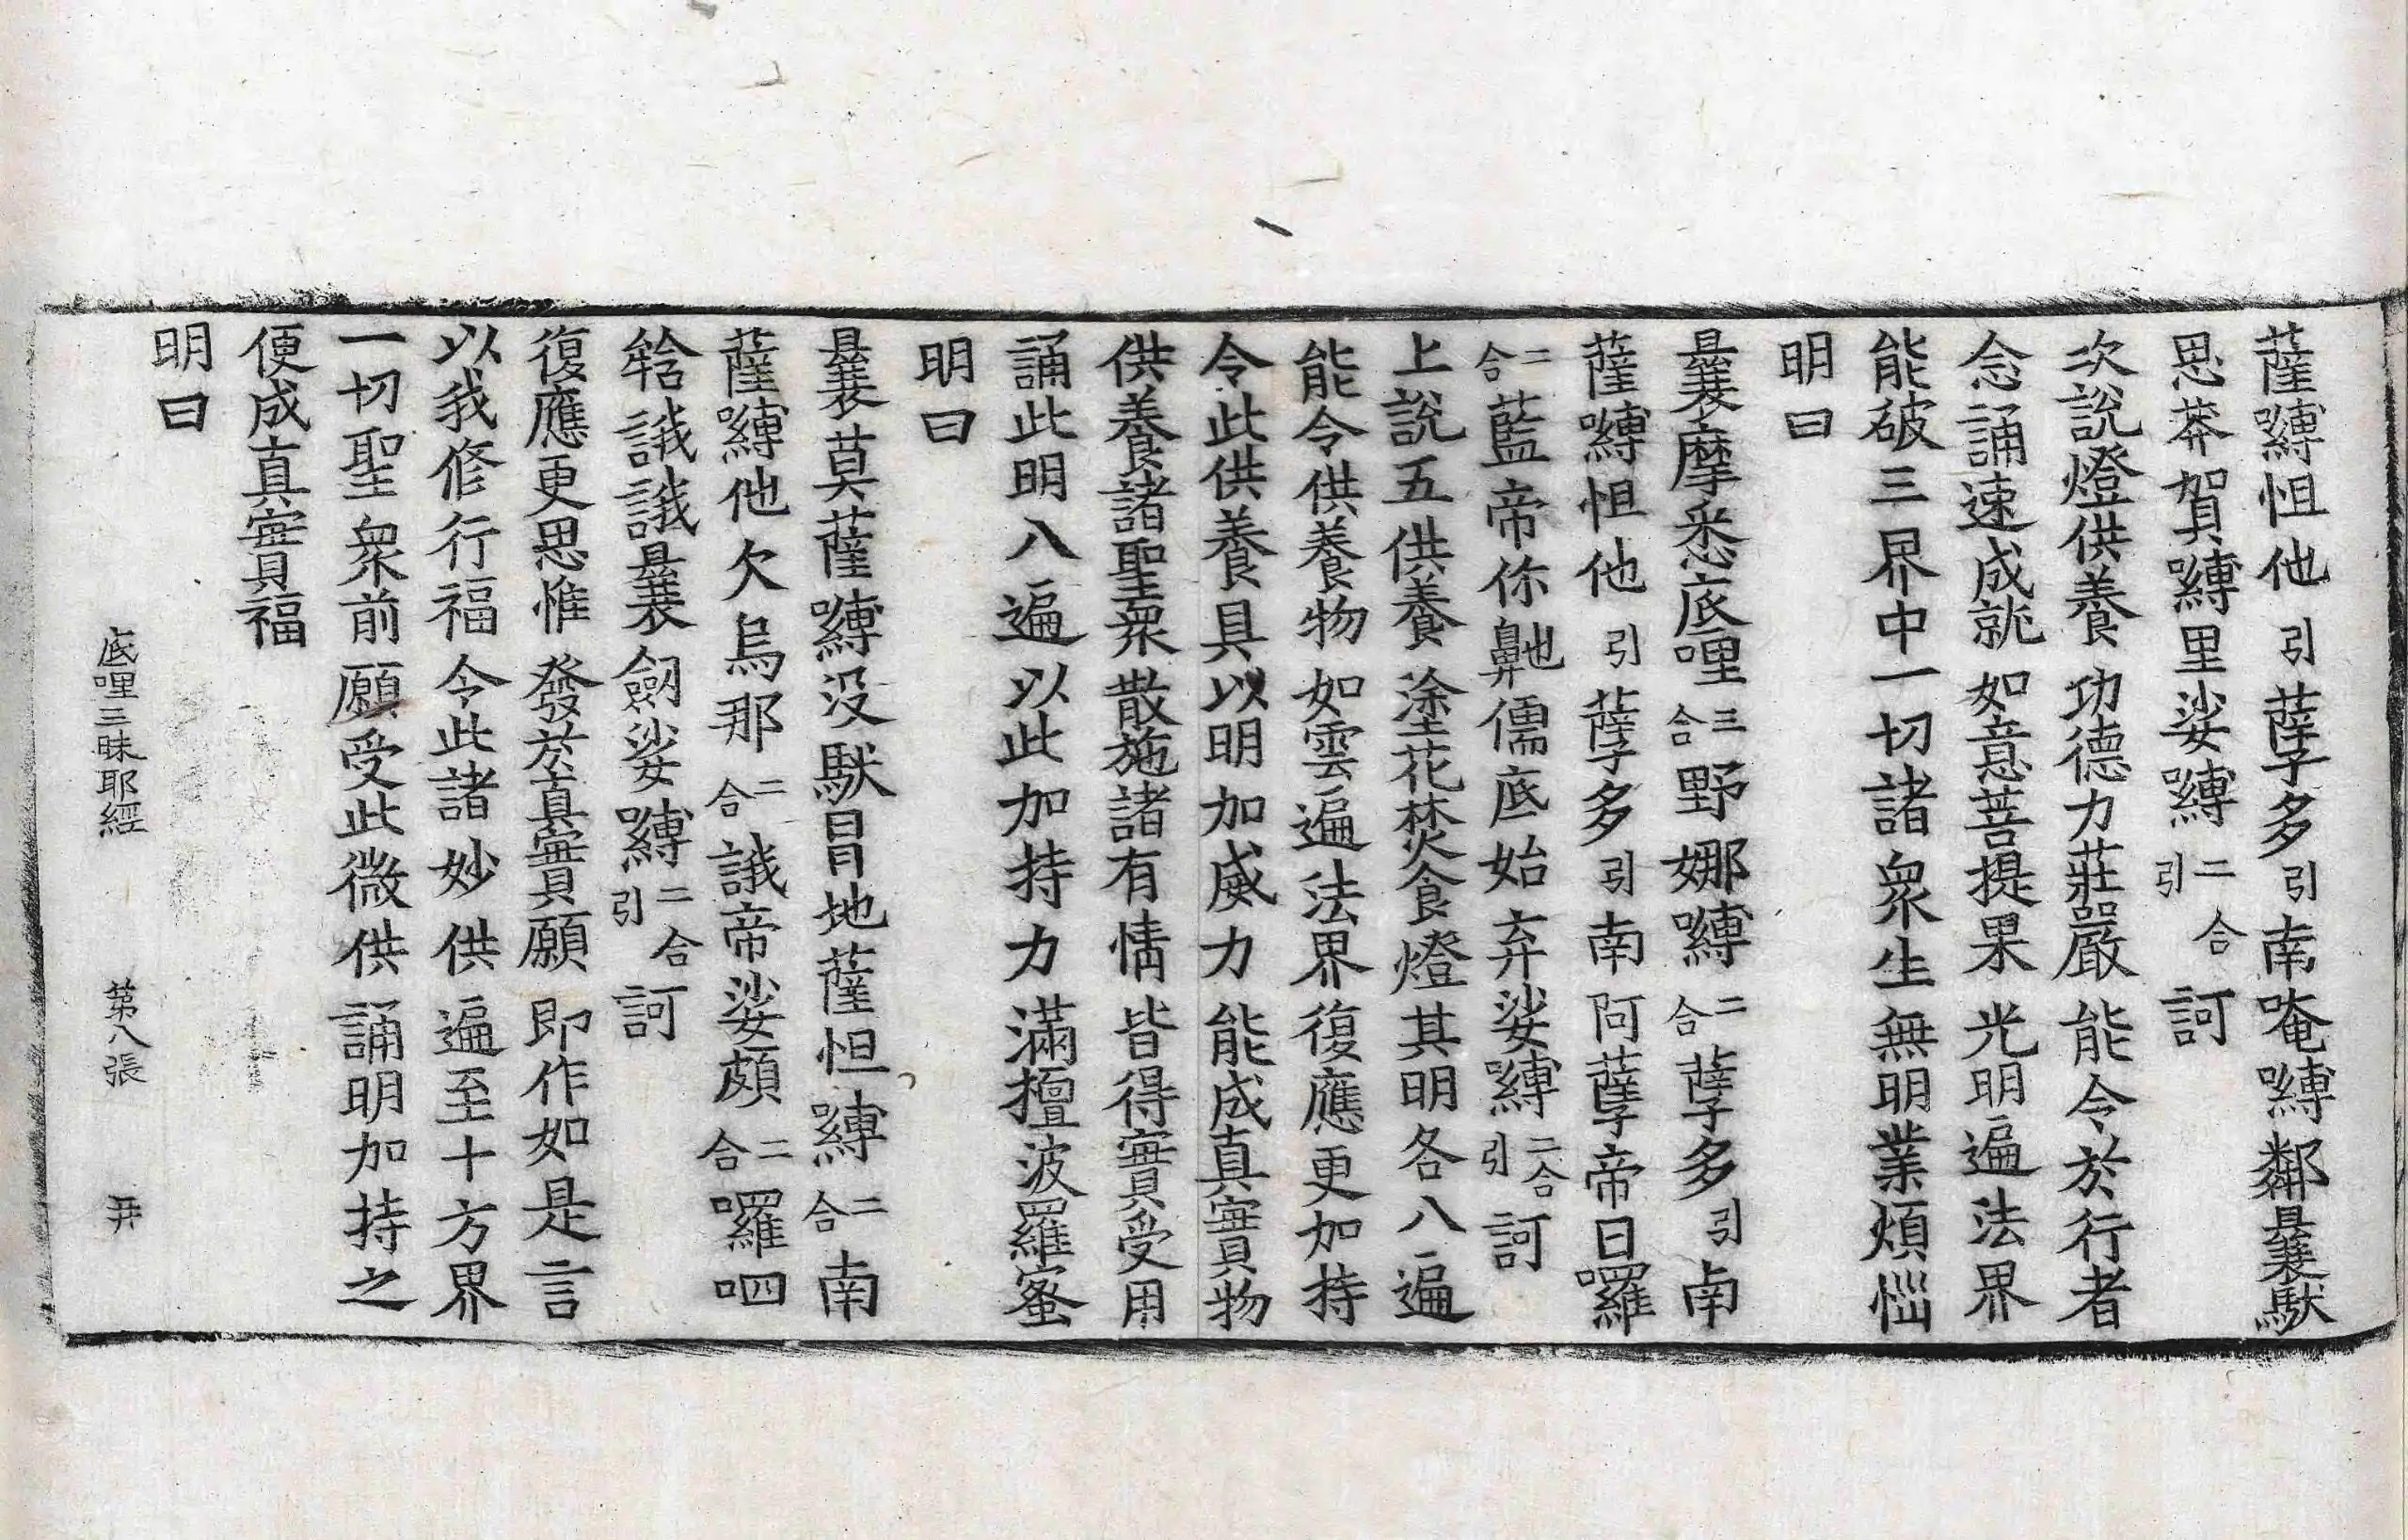 薩嚩怛他引孽多引南唵嚩鄰曩馱
思莽賀嚩里娑嚩二合引訶
次說燈供養功德力莊嚴能令於行者
念誦速成就如意菩提果光明遍法界
能破三界中一切諸衆生無明業煩惱
明曰
曩摩悉底哩三合野娜嚩二合孽多引南
薩嚩怛他引孽多引南阿孽帝日囉
二合藍帝你鼻也儒底始弃娑嚩二合引訶
上說五供養塗花焚食燈其明各八遍
能令供養物如雲遍法界復應更加持
令此供養具以明加威力能成真實物
供養諸聖衆散施諸有情皆得實受用
誦此明八遍以此加持力滿檀波羅蜜
明曰
曩莫薩嚩没馱冒地薩怛嚩二合南
薩嚩他欠烏那二合誐帝娑頗二合囉呬
𤚥誐誐曩劒娑嚩二合引訶
復應更思惟發於真實願即作如是言
以我修行福令此諸妙供遍至十方界
一切聖衆前願受此微供誦明加持之
便成真實福
明曰
底哩三昧耶經 第八張